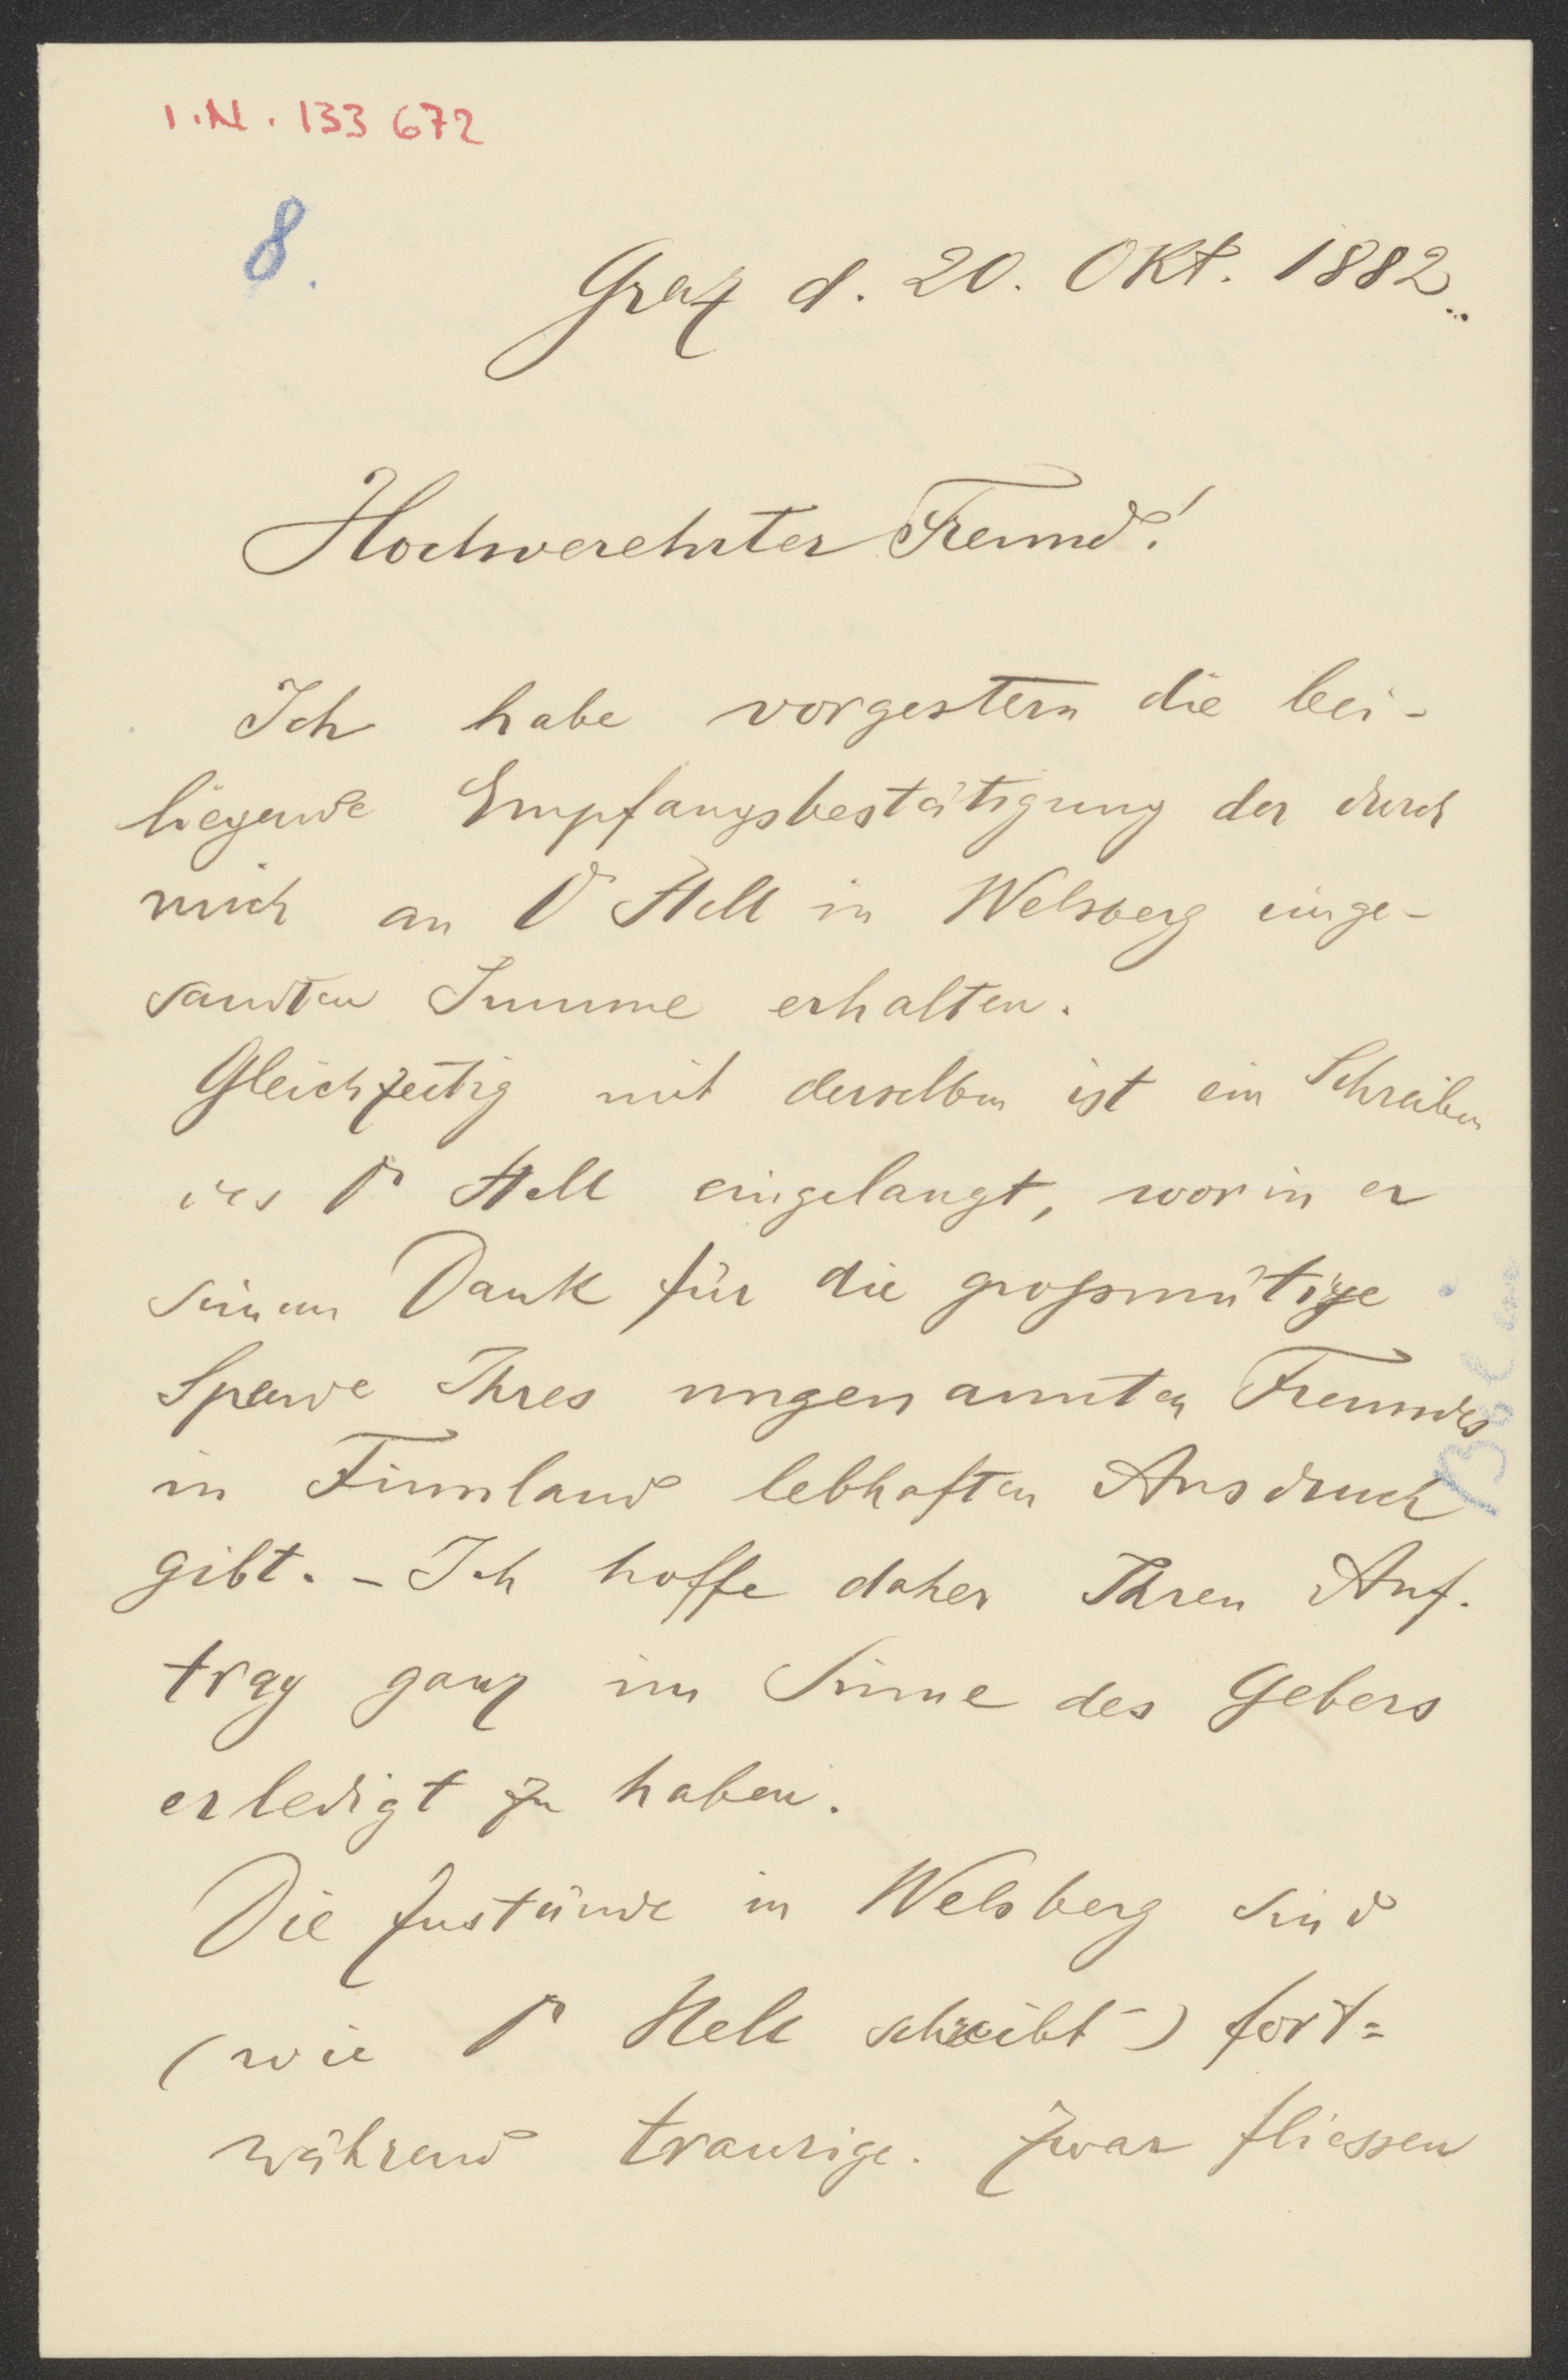 I.N. 133 672
8.
Graz d. 20. Okt. 1882.
Hochverehrter Freund!
Ich habe vorgestern die bei-
liegende Empfangsbestätigung der durch
mich an Dr Hell in Welsberg einge-
sandten Summe erhalten.
Gleichzeitig mit derselben ist ein Schreiben
des Dr Hell eingelangt, worin er
seinen Dank für die großmütige
Spende Ihres ungenannten Freundes
in Finnland lebhaften Ausdruck
gibt. - Ich hoffe daher Ihren Auf-
trag ganz im Sinne des Gebers
erledigt zu haben.
Die Zustände in Welsberg sind
(wie Dr Hell schreibt -) fort=
während traurige. Zwar fliessen